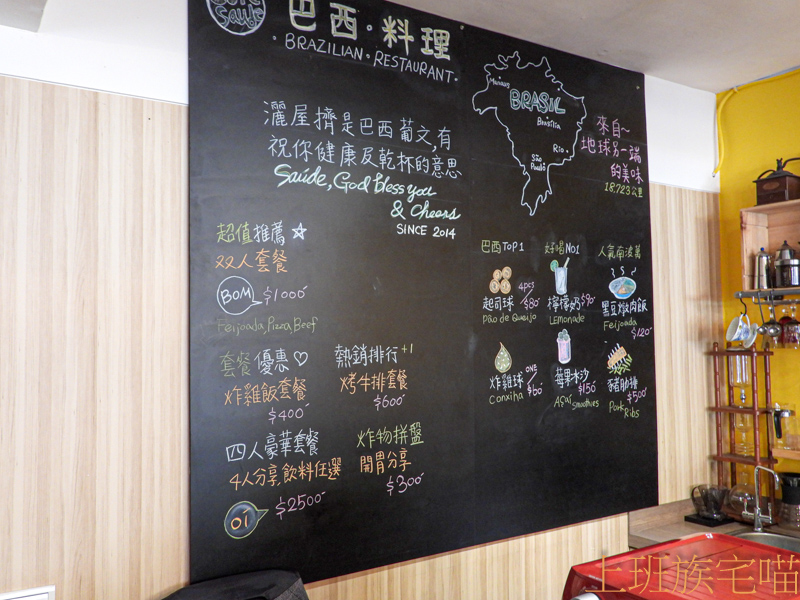 Saúde
巴西·料理
·BRAZILIAN·RESTAURANT·
灑屋擠是巴西葡文,有
祝你健康及乾杯的意思
Saúde, God Bless you
& Cheers
SINCE 2014
Manaus
BRASIL
Brasília
Rio
São
Paulo
來自~
地球另一端
的美味
18,723公里
超值推薦☆
双人套餐
BOM $1000
Feijoada, Pizza, Beef
套餐優惠♡
炸雞飯套餐
$400
熱銷排行+1
烤牛排套餐
$600
四人豪華套餐
4人分享,飲料任選
OI $2500
炸物拼盤
開胃分享
$300
巴西TOP1
4pcs
起司球 $80
Pão de Queijo
好喝NO1
檸檬奶 $90
LEMONADE
人氣南波萬
黑豆燉肉飯
Feijoada
$120
ONE
炸雞球 $60
Conxiha
莓果冰沙
$150
Açaí Smoothies
豬肋排
$500
Pork
Ribs
上班族宅喵